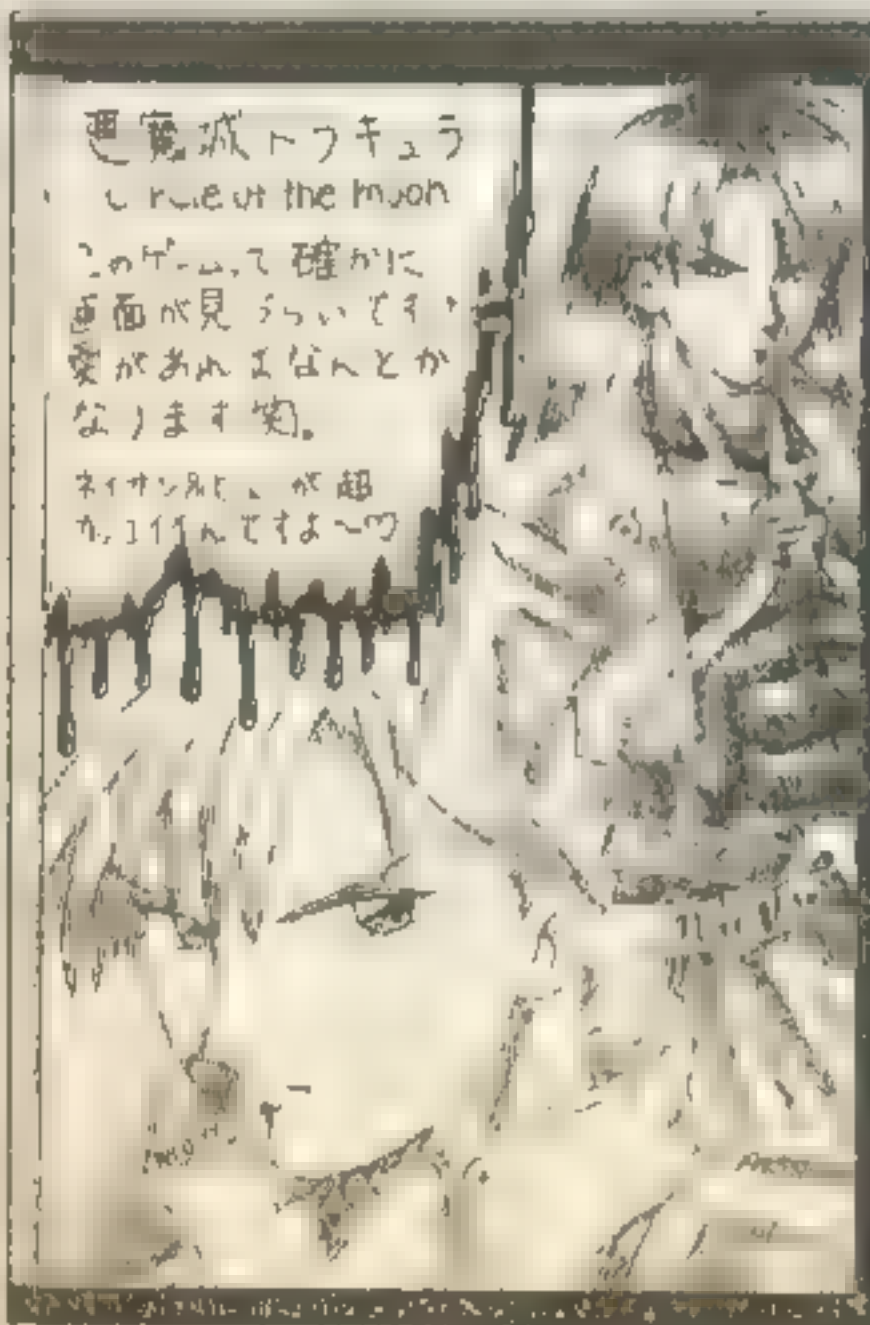 悪魔城ドラキュラ
Circle of the moon
このゲームって確かに
画面が見づらいです
愛があればなんとか
なります笑。
ネイサンが超
カッコイイんですよ〜♡